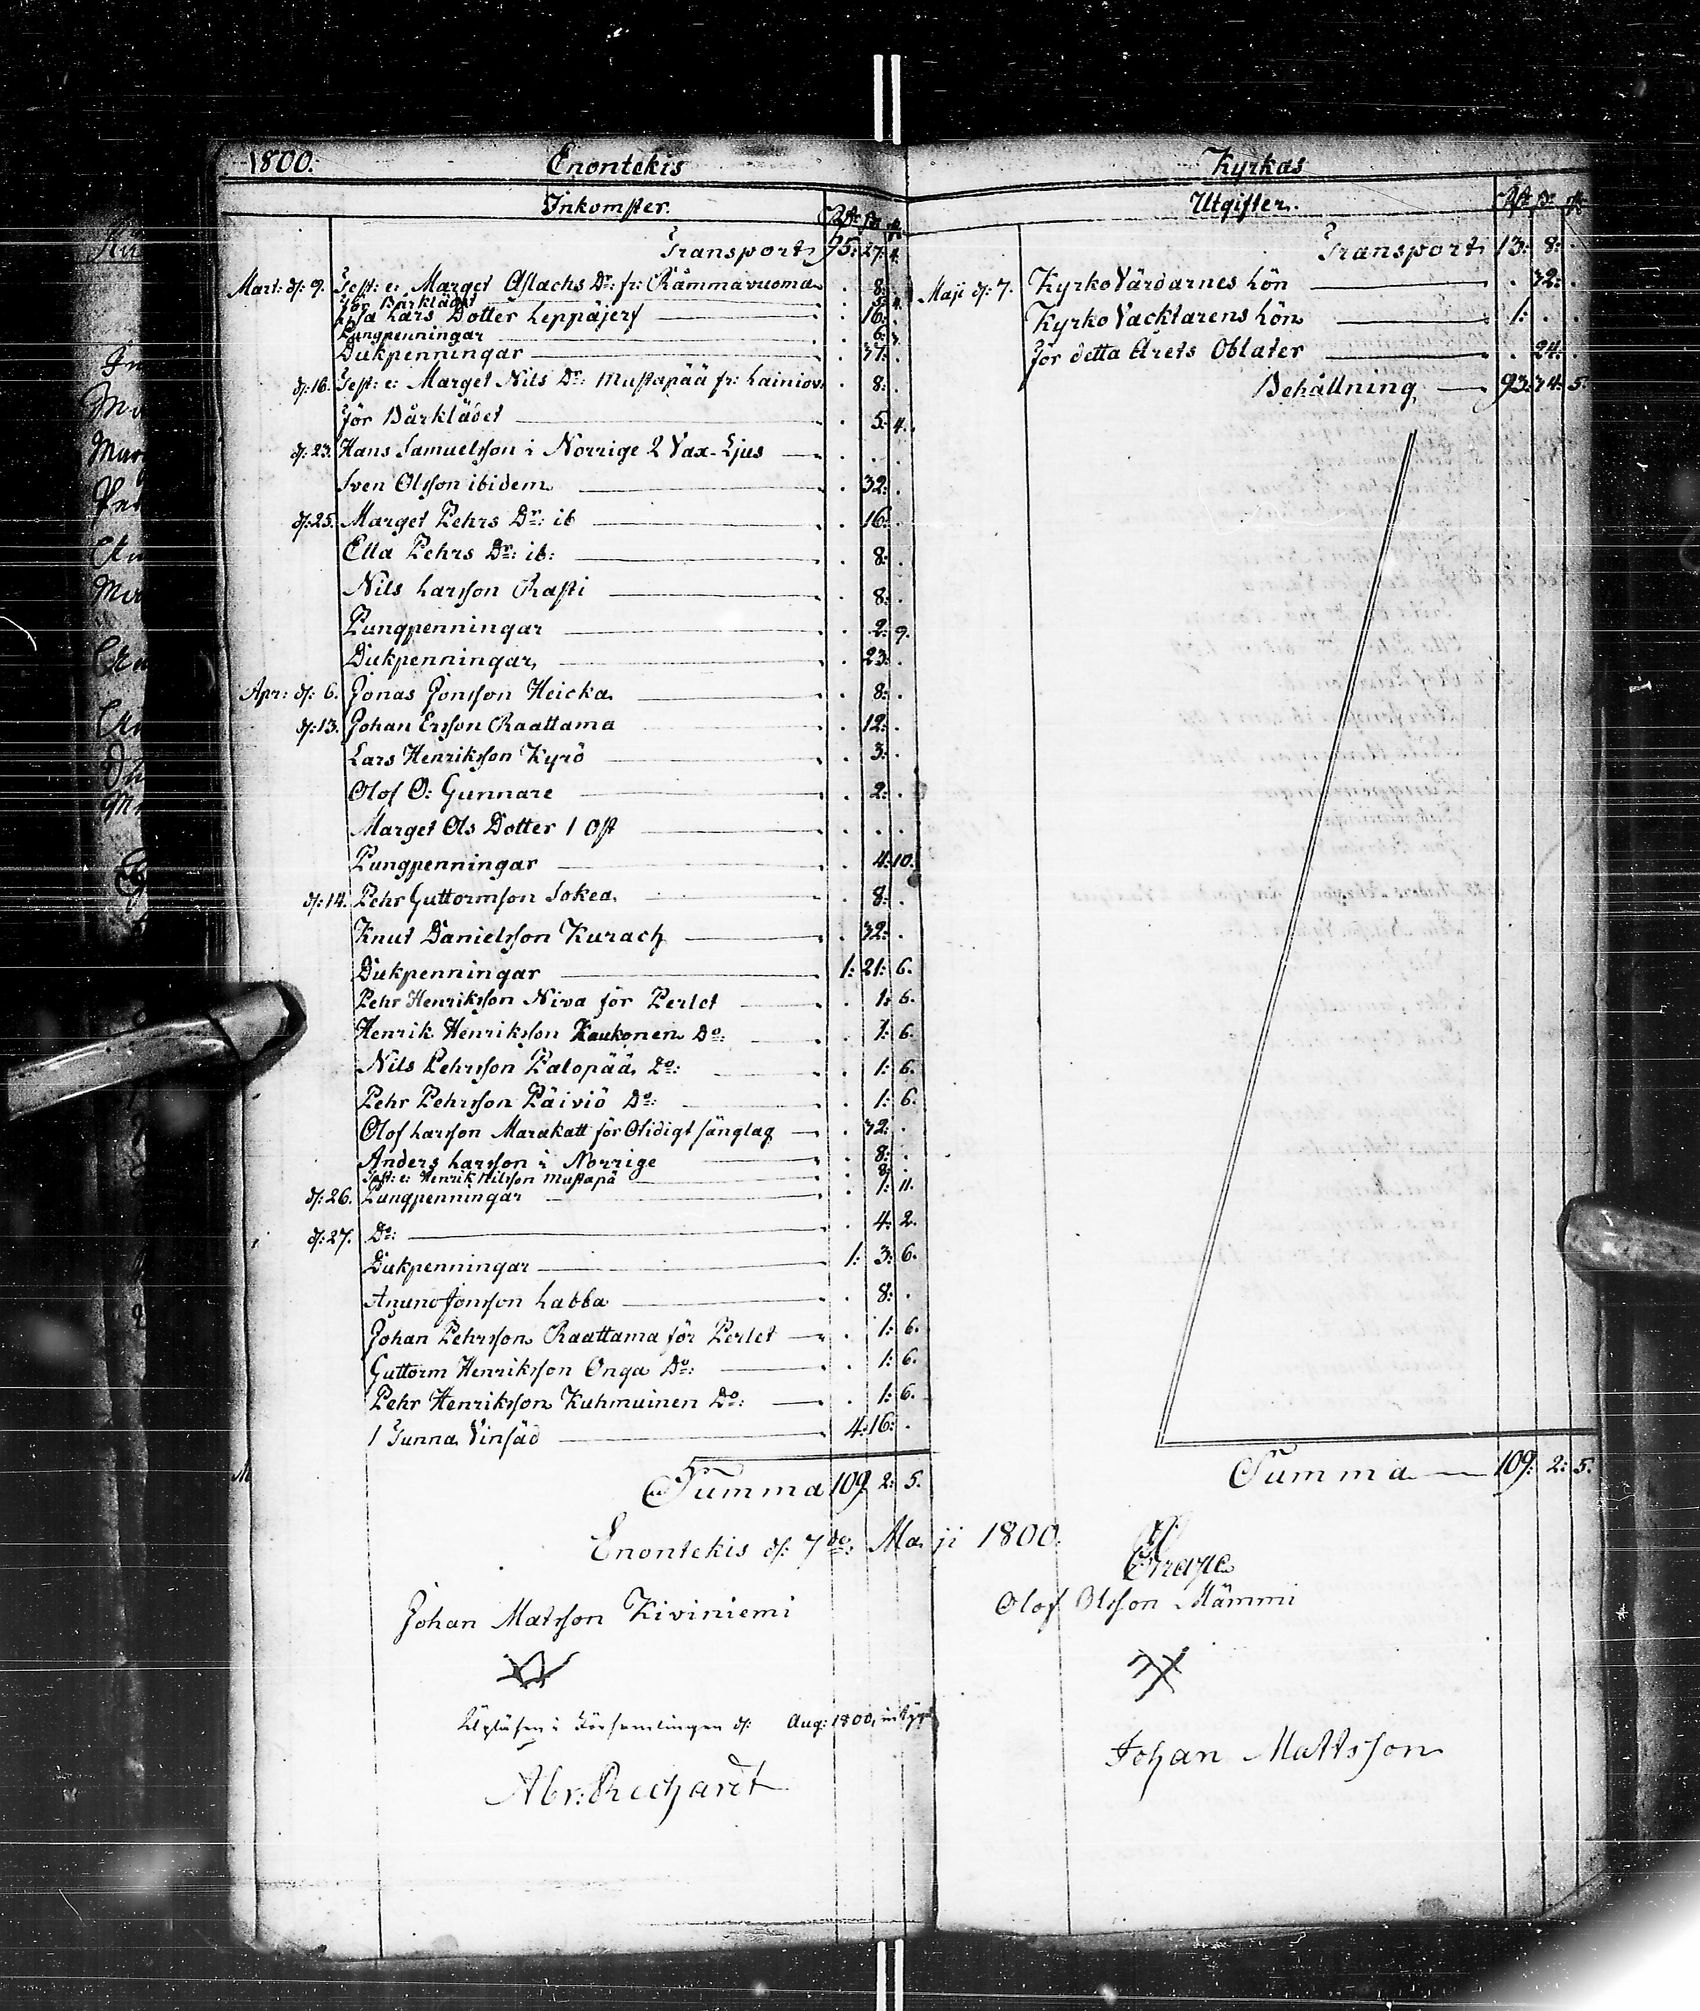 1800. Enontekis
Inkomster. Rdr ß. r.
Transport 95: 27: 4.
Mart: d: 9. Test: e: Marget Aslachs Dr: fr: Rämmävuoma . 8: .
för Bårklädet . 5: 4.
Lars Dotter Leppäjerf . 16: .
Pungpenningar . 6: 3.
Dukpenningar . 37: .
d: 16. Test: e: Marget Nils Dr: Mustapää fr: Lainiov. . 8: .
för Bårklädet . 5: 4.
d: 23. Hans Samuelsson i Norrige 2 Vax-Ljus . . .
Sven Olsson ibidem . 32: .
d: 25. Marget Pehrs Dr: ib . 16: .
Ella Pehrs Dr: ib: . 8: .
Nils Larsson Rasti . 8: .
Pungpenningar . 2: 9.
Dukpenningar . 23: .
Apr: d: 6. Jonas Jonsson Heicka . 8: .
d: 13. Johan Ersson Raattama . 12: .
Lars Henriksson Kyrö . 3: .
Olof O: Gunnare . 2: .
Marget Ols Dotter 1 Ost . . .
Pungpenningar . 4: 10.
d: 14. Pehr Guttormson Sokea . 8: .
Knut Danielsson Kurach . 32: .
Dukpenningar 1: 21: 6.
Pehr Henriksson Niva för Perlet . 1: 6.
Henrik Henriksson Kaukonen Do: . 1: 6.
Nils Pehrsson Palopää Do: . 1: 6.
Pehr Pehrsson Päiviö Do: . 1: 6.
Olof Larsson Marakatt för Otidigt sänglag . 32: .
Anders Larsson i Norrige . 8: .
Test: e: Henrik Nilsson Mustapä . 8: .
d: 26. Pungpenningar . 1: 11.
d: 27. Do: . 4: 2.
Dukpenningar 1: 3: 6.
Anund Jonsson Labba . 8: .
Johan Pehrsson Raattama för Perlet . 1: 6.
Guttorm Henriksson Onga Do: . 1: 6.
Pehr Henriksson Kuhmuinen Do: . 1: 6.
1 Tunna Vinsäd 4: 16: .
Summa 109 2: 5.
Kyrkas
Utgifter. Rdr ß. r.
Transport 13: 8: .
Maji d: 7. Kyrko Värdarnes Lön . 32: .
Kyrko Vacktarens Lön 1: . .
för detta Årets Oblater . 24: .
Behållning 93: 34: 5.
Summa 109: 2: 5.
Enontekis d: 7de: Maji 1800.
Johan Matsson Kiviniemi
Olof Olsson Mämmi
Upläsen i Församlingen d: Aug: 1800, intygar
Johan Mattsson
Abr: Rechardt